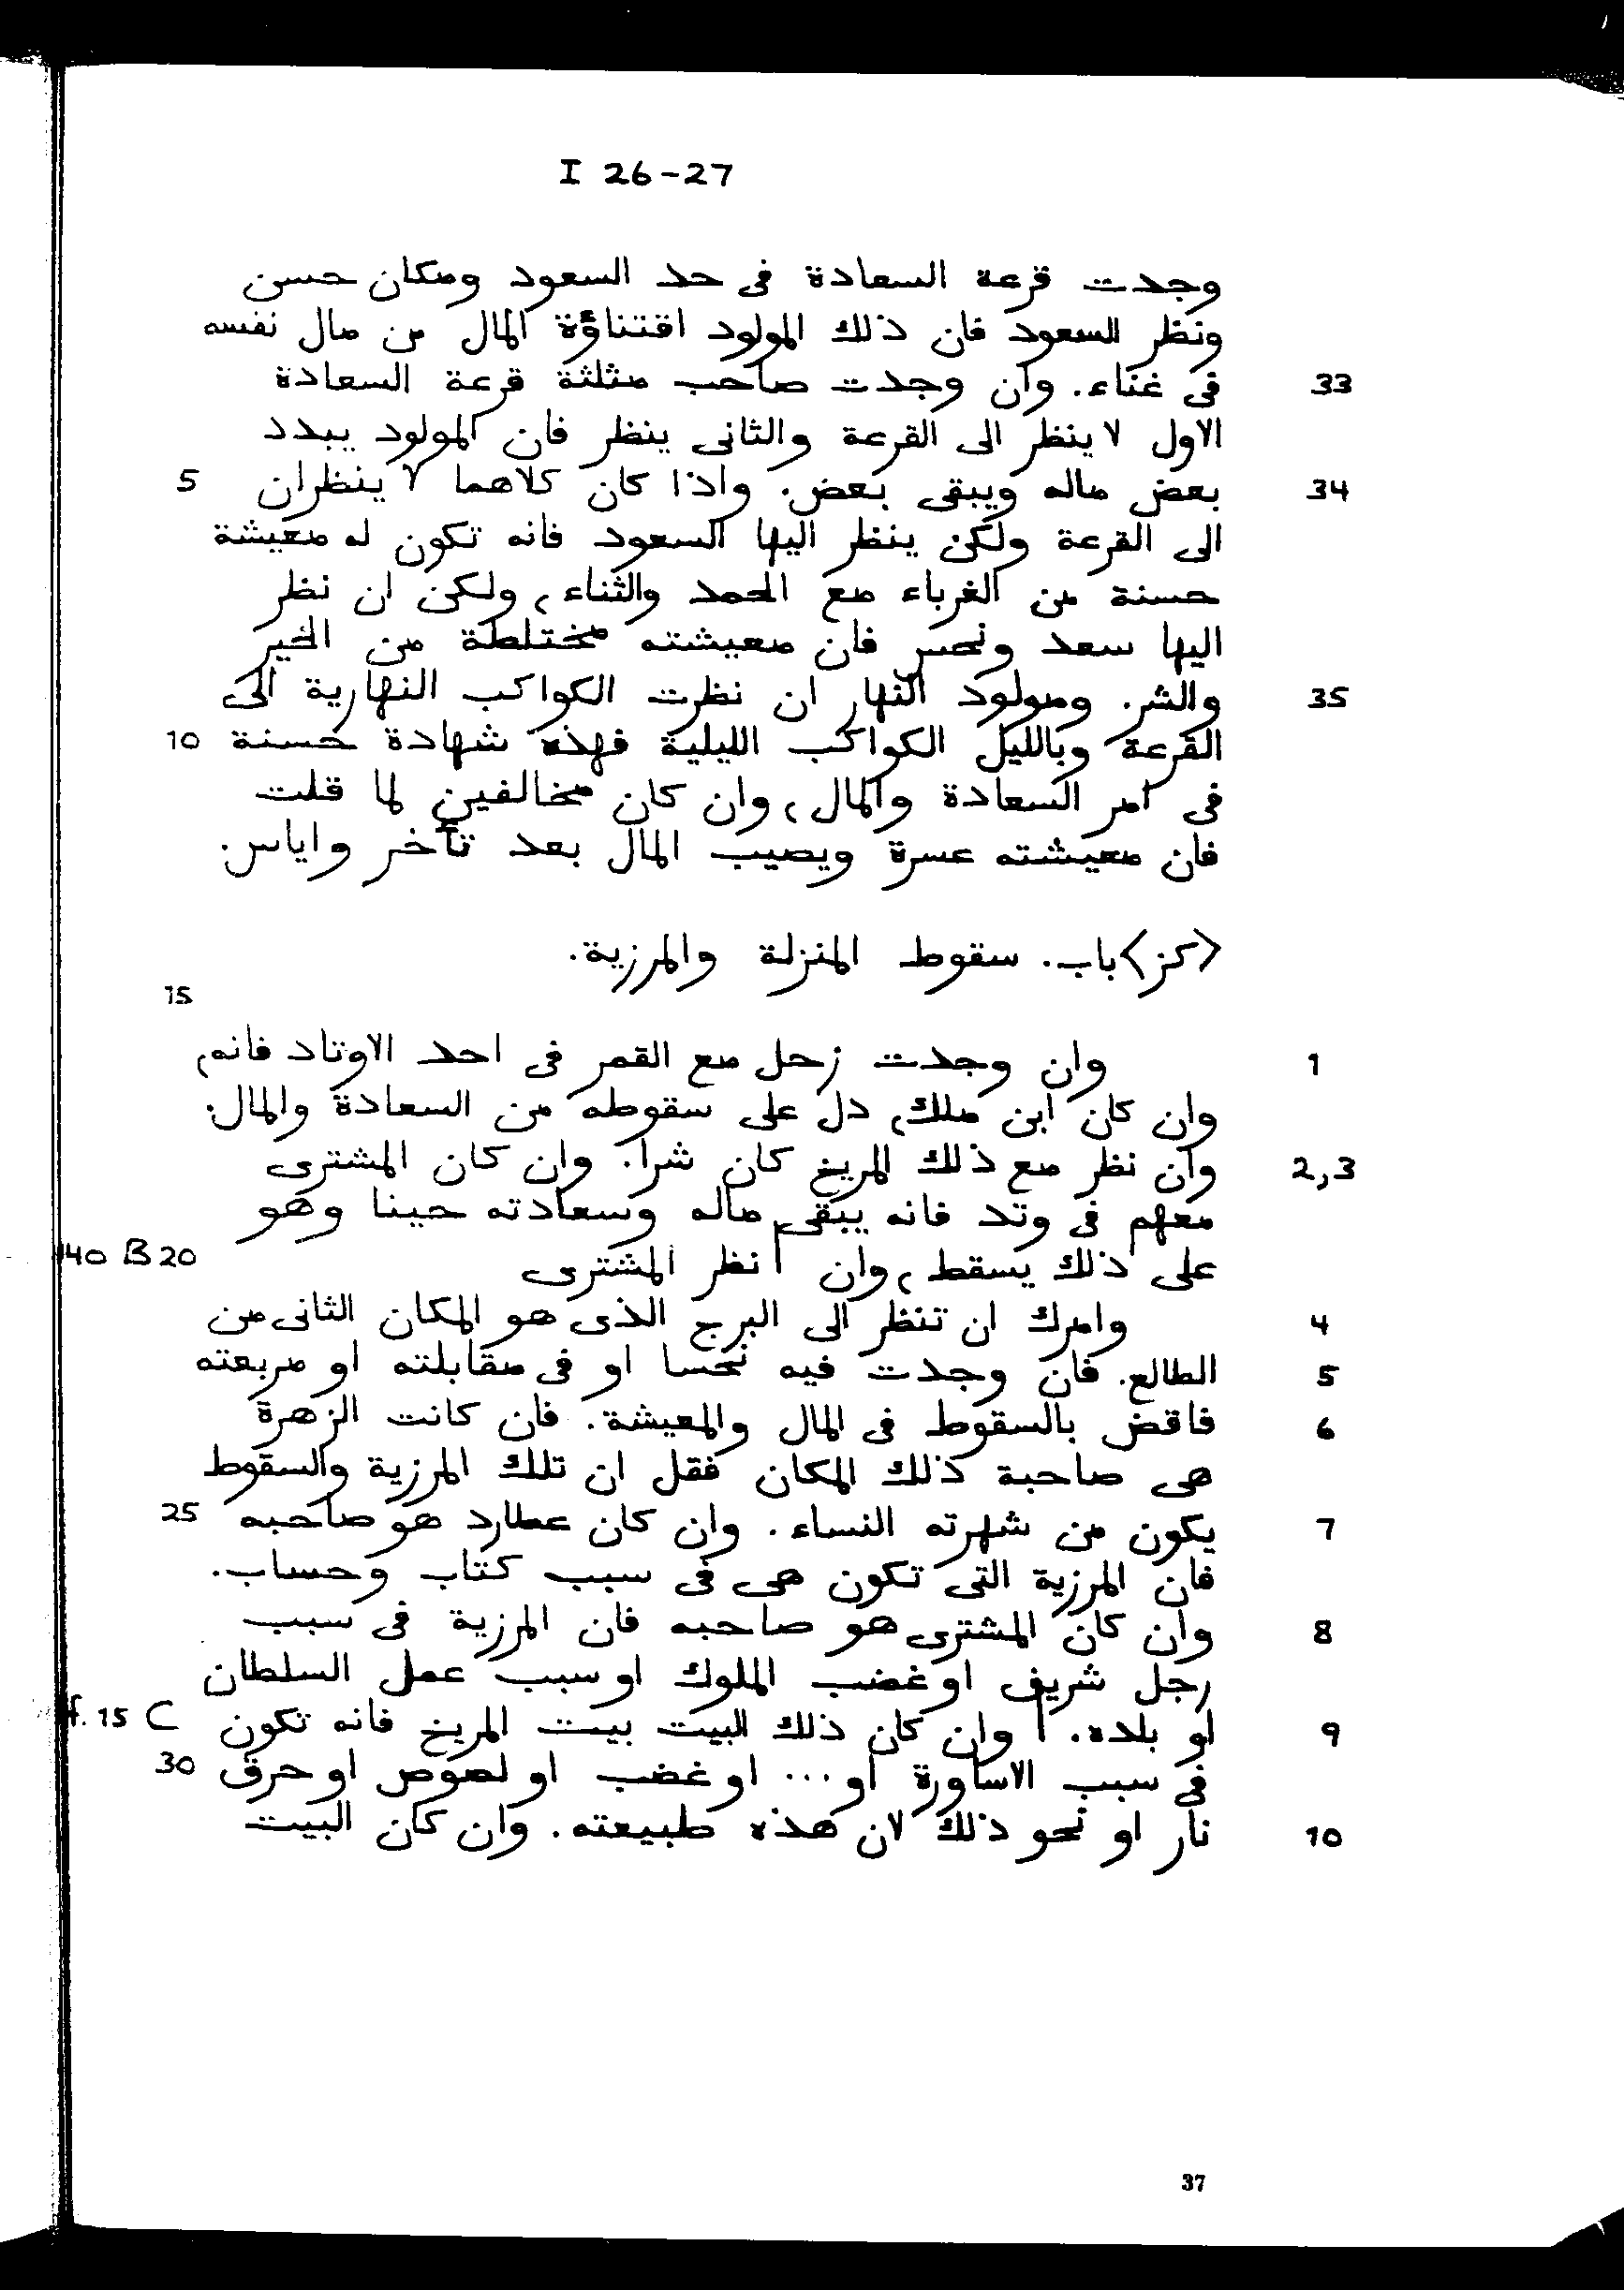 I 26-27
وجدت قرعة السعادة فى حد السعود ومكان حسن
ونظر السعود فان ذلك المولود اقتناؤة المال من مال نفسه
33 فى غناء. وان وجدت صاحب مثلثة قرعة السعادة
الاول لا ينظر الى القرعة والثانى ينظر فان المولود يبدد
34 بعض ماله ويبقى بعض. واذا كان كلاهما لا ينظران 5
الى القرعة ولكن ينظر اليها السعود فانه تكون له معيشة
حسنة من الغرباء مع الحمد والثناء، ولكن ان نظر
اليها سعد ونحس فان معيشته مختلطة من الخير
35 والشر. ومولود النهار ان نظرت الكواكب النهارية الى
القرعة وبالليل الكواكب الليلية فهذه شهادة حسنة 10
فى امر السعادة والمال، وان كان مخالفين لما قلت
فان معيشته عسرة ويصيب المال بعد تأخر واياس.
<كز> باب. سقوط المنزلة والمرزية.
15
1 وان وجدت زحل مع القمر فى احد الاوتاد فانه،
وان كان ابن ملك، دل على سقوطه من السعادة والمال.
2,3 وان نظر مع ذلك المريخ كان شرا. وان كان المشترى
معهم فى وتد فانه يبقى ماله وسعادته حينا وهو
على ذلك يسقط، وان | نظر المشترى 40 B 20
4 وامرك ان تنظر الى البرج الذى هو المكان الثانى من
5 الطالع. فان وجدت فيه نحسا او فى مقابلته او مربعته
6 فاقض بالسقوط فى المال والمعيشة. فان كانت الزهرة
هى صاحبة ذلك المكان فقل ان تلك المرزية والسقوط
7 يكون من شهرته النساء. وان كان عطارد هو صاحبه 25
فان المرزية التى تكون هى فى سبب كتاب وحساب.
8 وان كان المشترى هو صاحبه فان المرزية فى سبب
رجل شريف او غضب الملوك او سبب عمل السلطان
9 او بلده. | وان كان ذلك البيت بيت المريخ فانه تكون f. 15 C
فى سبب الاساورة او... او غضب او لصوص او حرق 30
10 نار او نحو ذلك لان هذه طبيعته. وان كان البيت
37